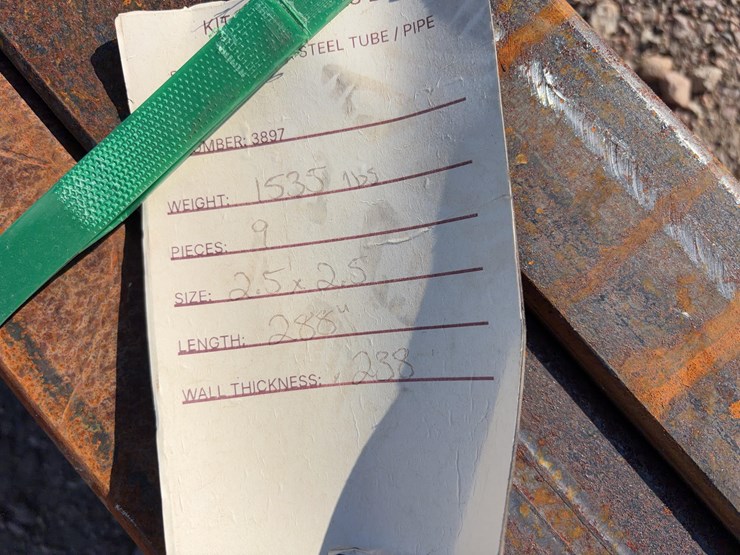 STEEL TUBE / PIPE
3897
WEIGHT: 1535 lbs
PIECES: 9
SIZE: 2.5 x 2.5
LENGTH: 288"
WALL THICKNESS: .238